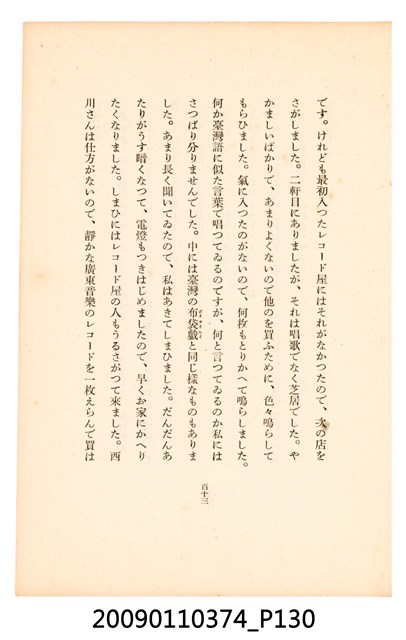 です。けれども最初入つたレコード屋にはそれがなかつたので、次の店を
さがしました。二軒目にありましたが、それは唱歌でなく芝居でした。や
かましいばかりで、あまりよくないので他のを買ふために、色々鳴らして
もらひました。氣に入つたのがないので、何枚もとりかへて鳴らしました。
何か臺灣語に似た言葉で唱つてゐるのですが、何と言つてゐるのか私には
さつぱり分りませんでした。中には臺灣の布袋戲と同じ樣なものもありま
した。あまり長く聞いてゐたので、私はあきてしまひました。だんだんあ
たりがうす暗くなつて、電燈もつきはじめましたので、早くお家にかへり
たくなりました。しまひにはレコード屋の人もうるさがつて來ました。西
川さんは仕方がないので、靜かな廣東音樂のレコードを一枚えらんで買は
百十三
20090110374_P130